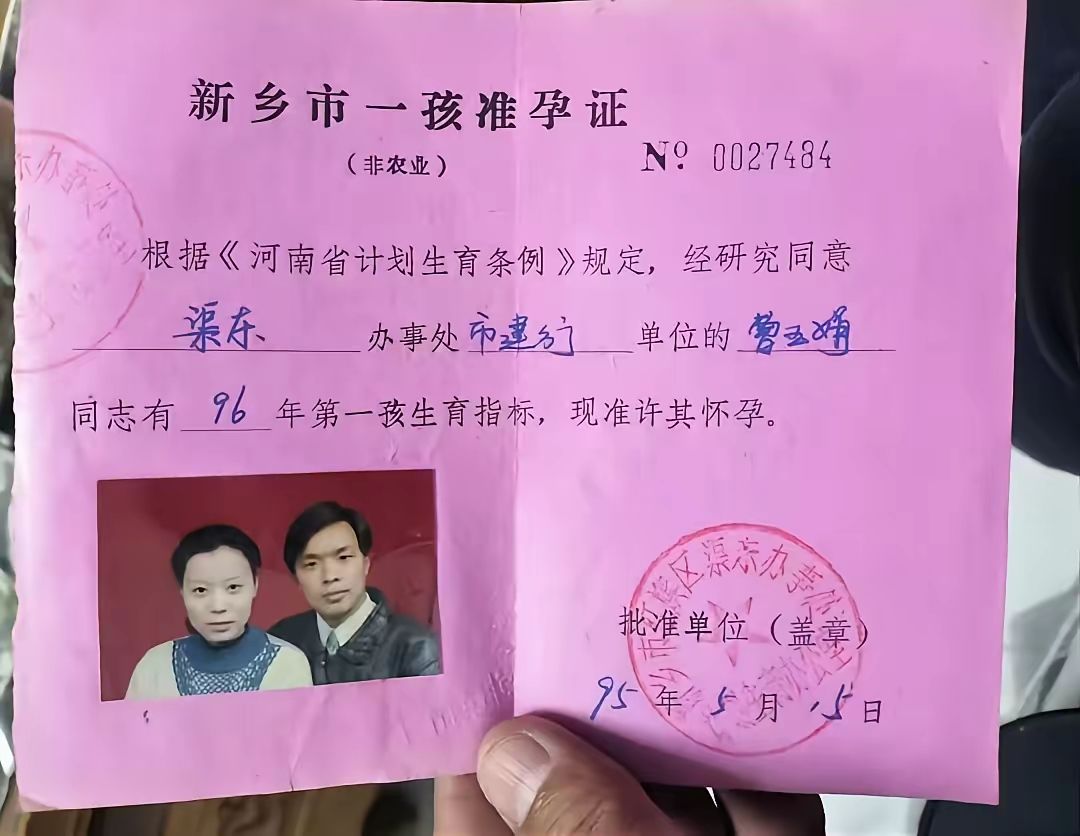 新乡市一孩准孕证
（非农业）
Nº 0027484
根据《河南省计划生育条例》规定，经研究同意
渠东 办事处 市建行 单位的 曹玉娟
同志有 96 年第一孩生育指标，现准许其怀孕。
批准单位（盖章）
95 年 5 月 15 日
区渠东办事
东办事